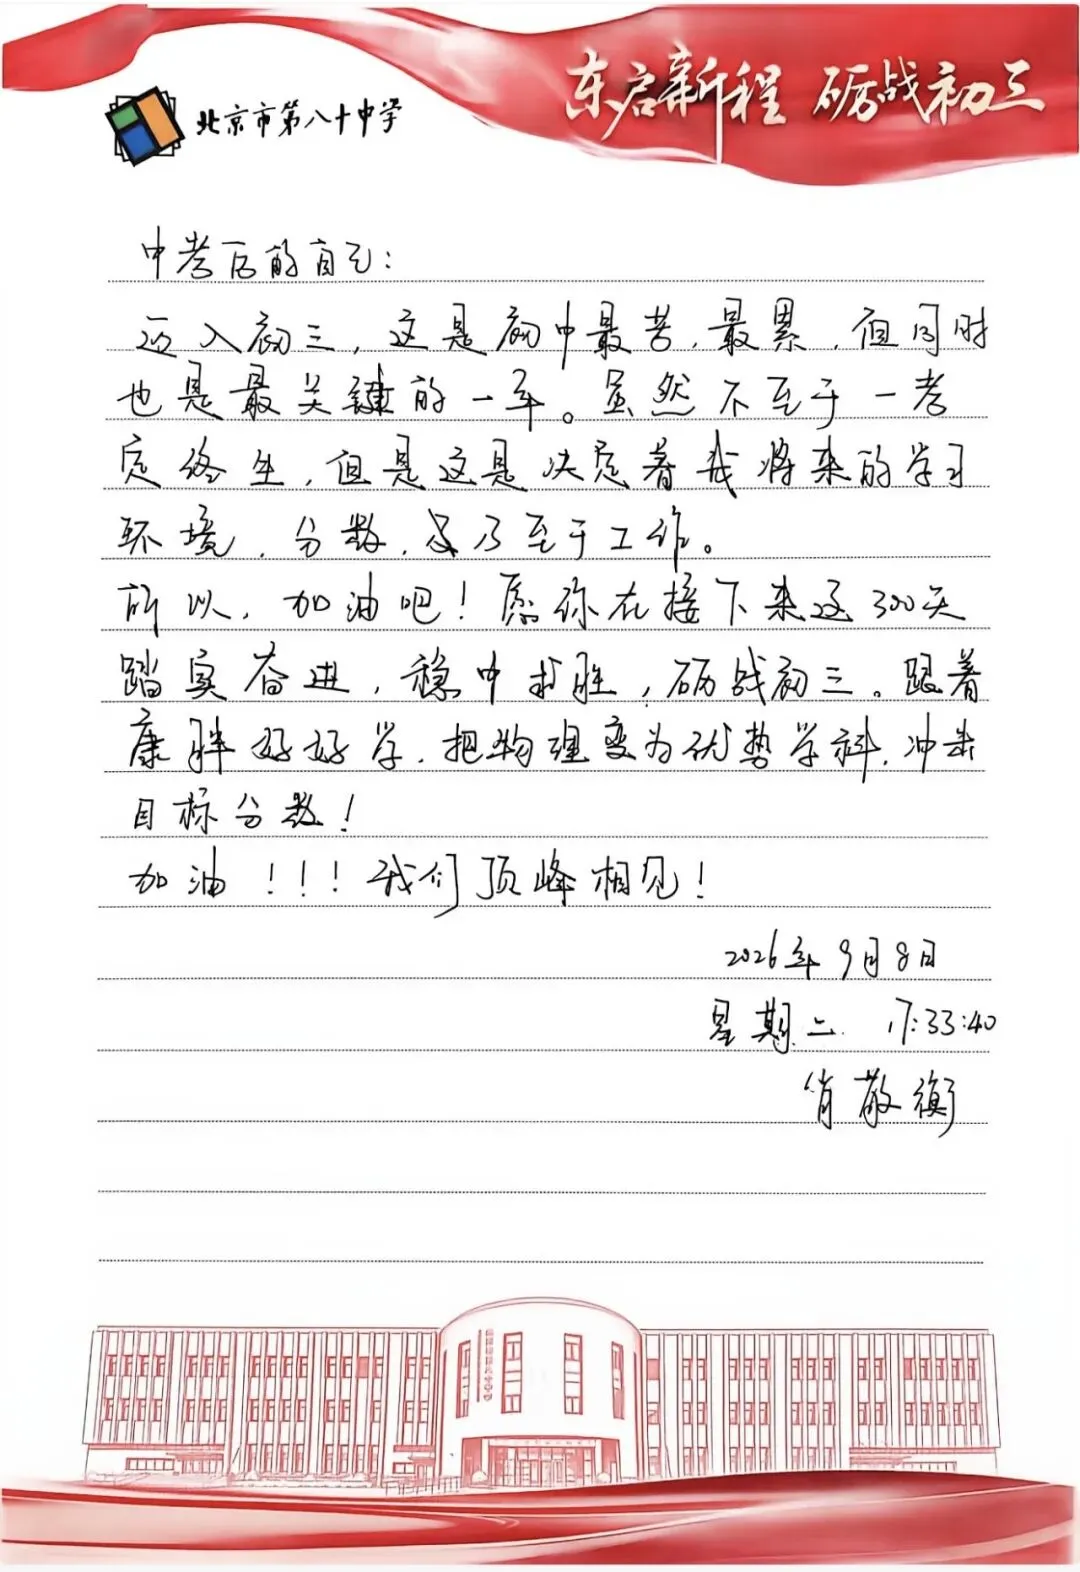 北京市第八十中学
东启新程 砺战初三
中考后的自己:
迈入初三，这是初中最苦,最累,但同时
也是最关键的一年。虽然不至于一考
定终生,但是这是决定着我将来的学习
环境,分数,及乃至于工作。
所以,加油吧!愿你在接下来这300天
踏实奋进,稳中求胜,砺战初三。跟着
康胖好好学,把物理变为优势学科,冲击
目标分数!
加油!!!我们顶峰相见!
2026年9月8日
星期二 17:33:40
肖敬衡